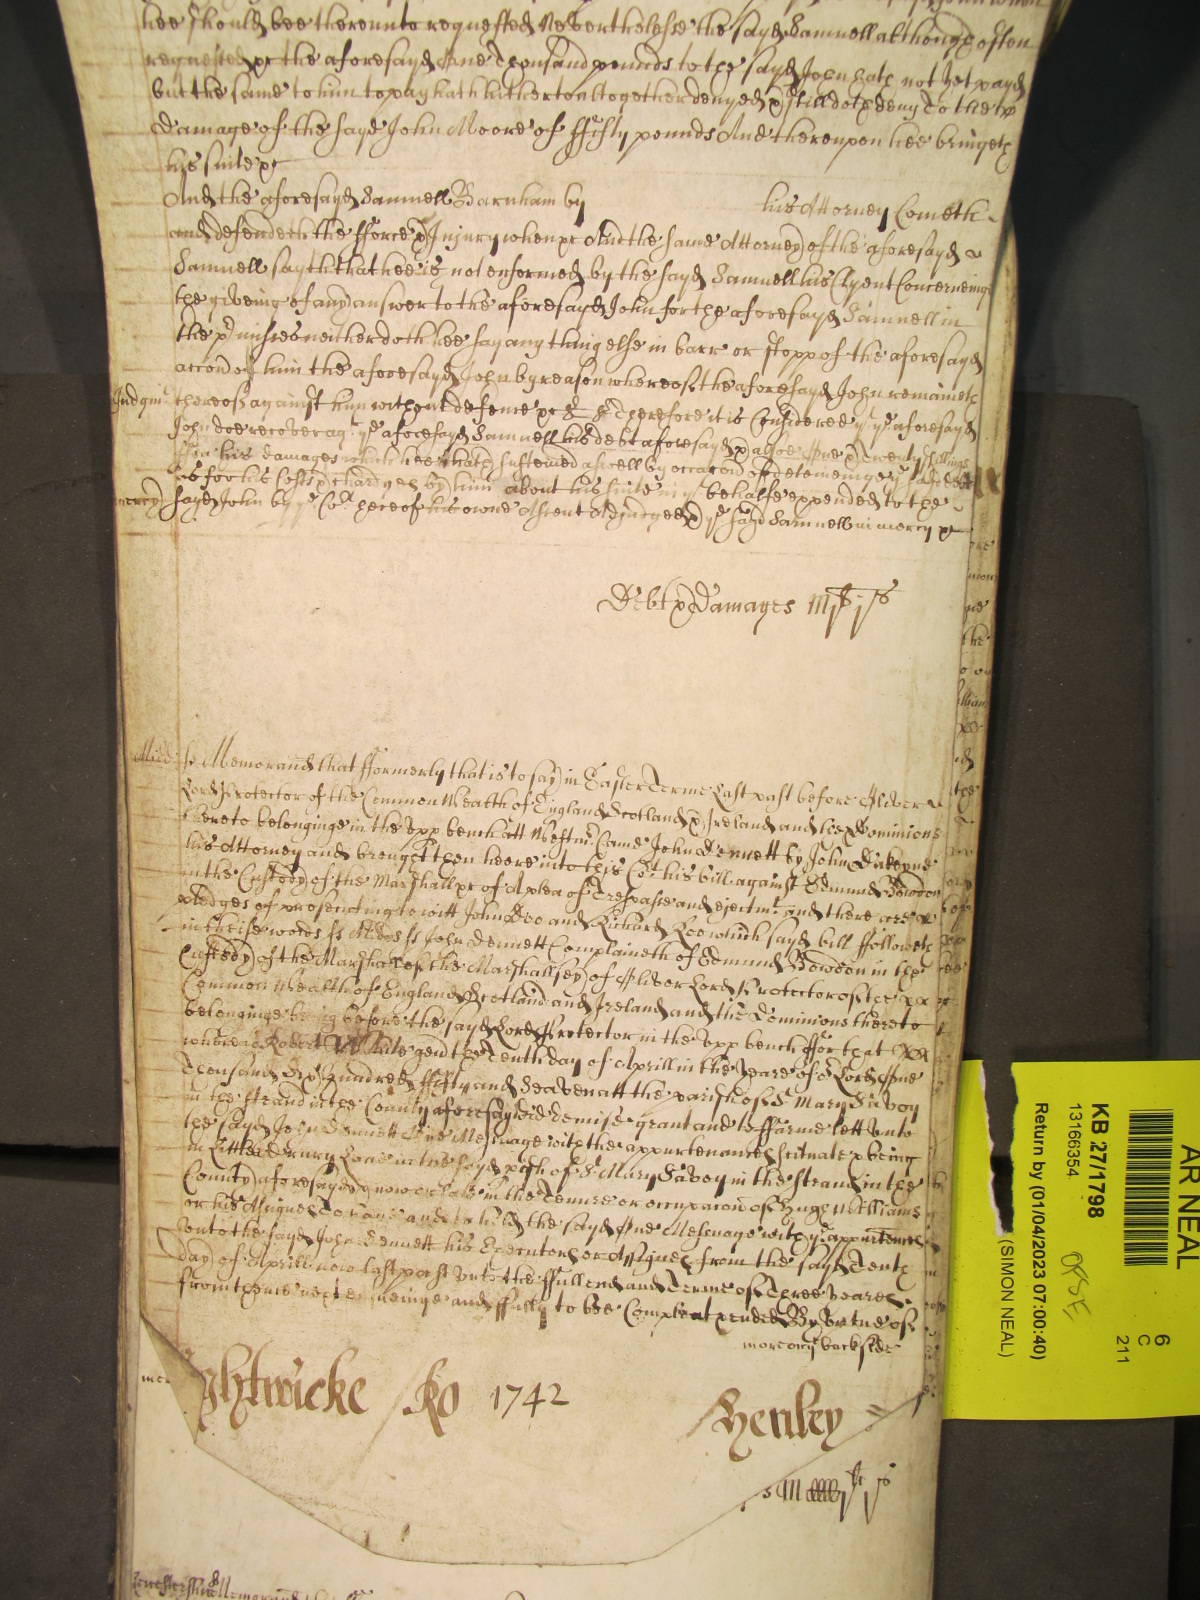 hee should bee thereunto requested Neverthelesse the sayd Samuell although often
requested &c the aforesayd One Thousand pounds to the sayd John hath not yet payd
but the same to him to pay hath hitherto altogether denyed & still doth deny To the
damage of the sayd John Moore of ffifty pounds And thereupon hee bringeth
his suite &c
And the aforesayd Samuell Barnham by his Attorney Cometh
and defendeth the fforce & Injury when &c And the same Attorney of the aforesayd
Samuell sayth that hee is not enformed by the sayd Samuell his Clyent Concerneing
the giveing of any answer to the aforesayd John for the aforesayd Samuell in
the p'misses neither doth hee say any thing else in barr or stopp of the aforesayd
accon of him the aforesayd John by reason whereof the aforesayd John remaineth
Judgmt thereof against him without defence &c Therefore it is Considered yt ye aforesayd
John doe recover agt ye aforesayd Samuell his debt aforesayd & alsoe One & Twenty shillings
for his damages which hee hath susteined aswell by occacon of deteineinge ye
as for his Costs & chardges by him about his suite in yt behalfe expended to the
mercy sayd John by ye Cort hereof his owne Assent Adjudged & ye sayd Samuell in mercy &c
Debt & Damages Mli js
Midd ss Memorand that fformerly that is to say in Easter Terme Last past before Oliver
Lord Protector of the Common Wealth of England Scotland & Ireland and the Dominions
thereto belonginge in the upp bench att Westmr Came John Dennett by John
his Attorney and brought then heere into this Cort his bill against Edmund Bowdon
in the Custody of the Marshall &c of A plea of Trespasse and ejectmt and there are
pledges of prosecuting to witt John Doe and Richard Roe which sayd bill ffolloweth
in theise words ss Midd ss John Dennett Complaineth of Edmund Bowdon in the
Custody of the Marshall of the Marshallsey of Oliver Lord Protector of the
Common Wealth of England Scotland and Ireland and the Dominions thereto
belonginge being before the sayd Lord Protector in the upp bench ffor that
whereas Robert White gent the Tenth day of Aprill in the yeare of or Lord One
Thousand Six Hundred ffifty and Seaven att the parish of St Mary Savoy
in the Strand in the County aforesayd did demise grant and to ffarme lett unto
the sayd John Dennett One Messuage with the appurtenances scituate & being
in Little Drury Lane in the sayd pish of St Mary Savoy in the Strand in the
County aforesayd & now or late in the Tenure or occupacon of Hugh Williams
or his Assignes To have and to hold the sayd One Messuage with ye appurtennces
unto the sayd John Dennett his Executors or Assignes from the sayd Tenth
day of Aprill now last past unto the ffull end and Terme of Three yeares
from thence next ensueinge and ffully to bee Compleat & ended By Vertue of
more on ye backside
htwicke Ro 1742 Henley
KB 27/1798
13166354
Return by (01/04/2023 07:00:40)
(SIMON NEAL)
AR NEAL
6
C
211